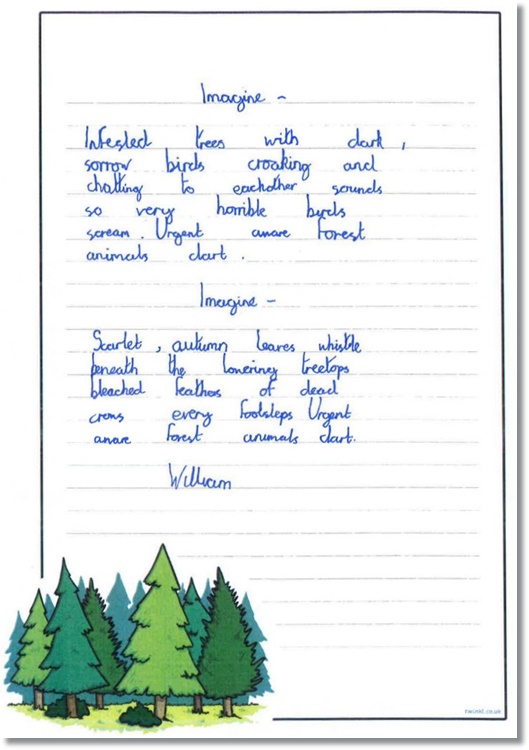 Imagine -
Infested trees with dark,
sorrow birds croaking and
chatting to eachother sounds
so very horrible birds
scream. Urgent aware forest
animals dart.
Imagine -
Scarlet, autumn leaves whistle
beneath the towering treetops
bleached feathers of dead
crows every footsteps Urgent
aware forest animals dart.
William
twinkl.co.uk